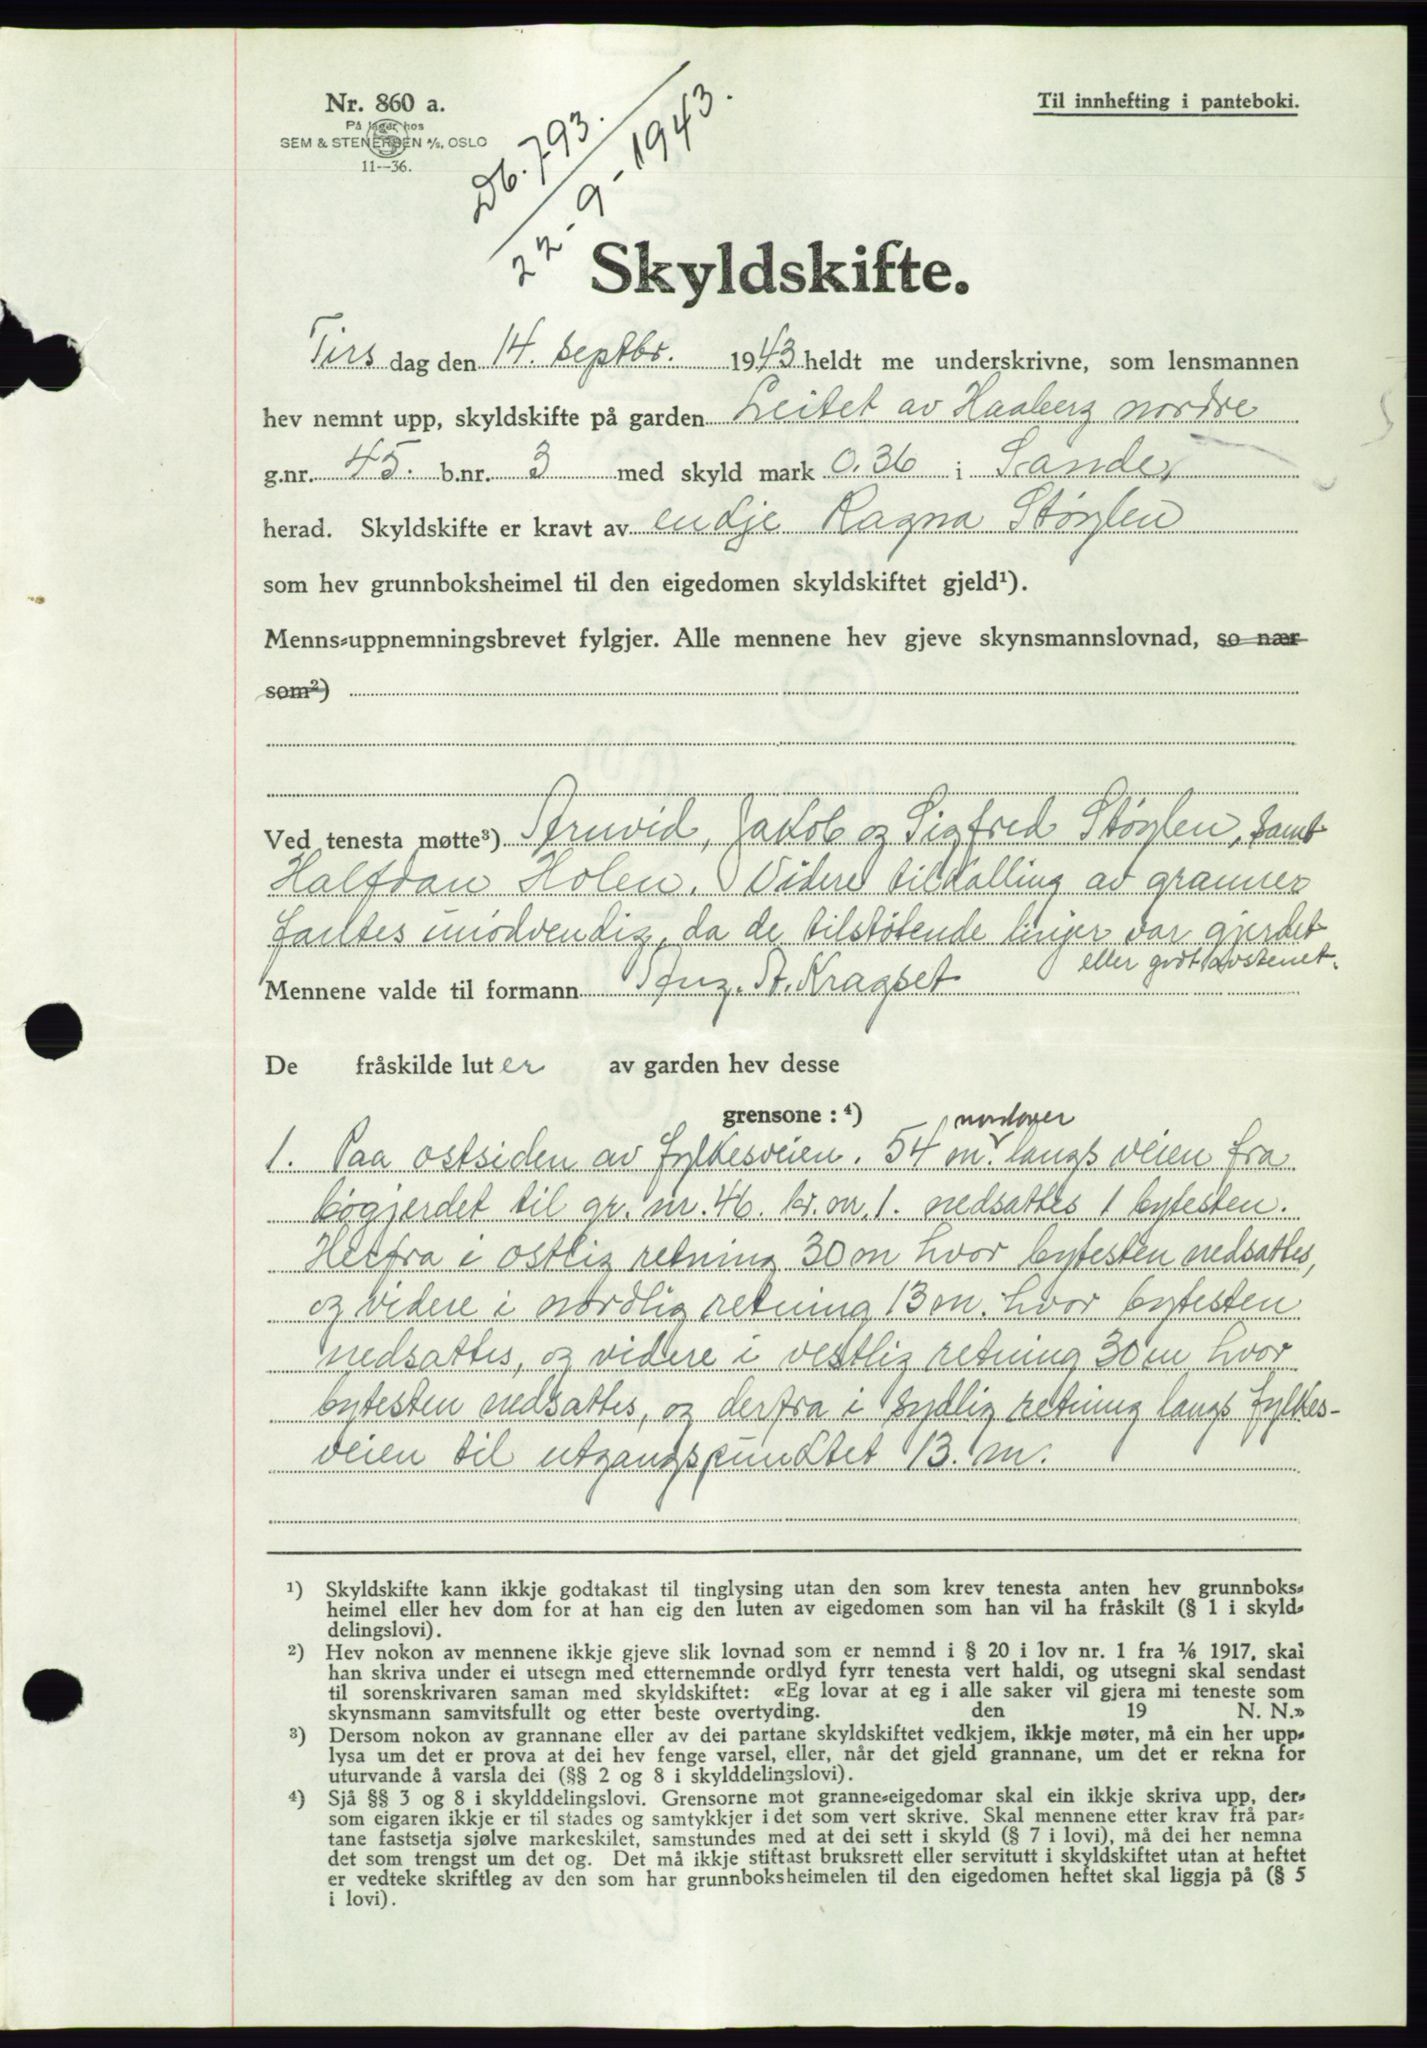 Nr. 860 a.
På lager hos
SEM & STENERSEN A/S, OSLO
11--36.
Db. 793.
22-9-1943.
Til innhefting i panteboki.
Skyldskifte.
Tirs dag den 14. septbr. 1943 heldt me underskrivne, som lensmannen
hev nemnt upp, skyldskifte på garden Leitet av Haaberg nordre
g.nr. 45. b.nr. 3 med skyld mark 0.36 i Sande,
herad. Skyldskifte er kravt av enkje Ragna Støylen
som hev grunnboksheimel til den eigedomen skyldskiftet gjeld¹).
Menns-uppnemningsbrevet fylgjer. Alle mennene hev gjeve skynsmannslovnad, so nær
som²)
Ved tenesta møtte³) Arnvid, Jakob og Sigfred Støylen, samt
Halfdan Holen. Videre tilkalling av granner
fantes unødvendig, da de tilstøtende linjer var gjerdet
eller godt avstenet.
Mennene valde til formann Aug. St. Kragset
De fråskilde luter av garden hev desse
grensone : ⁴)
nordover
1. Paa ostsiden av fylkesveien. 54 m. langs veien fra
bøgjerdet til gr. nr. 46. br. nr. 1. nedsattes 1 bytesten.
Herfra i ostlig retning 30 m hvor bytesten nedsattes,
og videre i nordlig retning 13 m. hvor bytesten
nedsattes, og videre i vestlig retning 30 m hvor
bytesten nedsattes, og derfra i sydlig retning langs fylkes-
veien til utgangspunktet 13. m.
¹) Skyldskifte kann ikkje godtakast til tinglysing utan den som krev tenesta anten hev grunnboks-
heimel eller hev dom for at han eig den luten av eigedomen som han vil ha fråskilt (§ 1 i skyld-
delingslovi).
²) Hev nokon av mennene ikkje gjeve slik lovnad som er nemnd i § 20 i lov nr. 1 fra 1/6 1917, skal
han skriva under ei utsegn med etternemnde ordlyd fyrr tenesta vert haldi, og utsegni skal sendast
til sorenskrivaren saman med skyldskiftet: «Eg lovar at eg i alle saker vil gjera mi teneste som
skynsmann samvitsfullt og etter beste overtyding. den 19 N. N.»
³) Dersom nokon av grannane eller av dei partane skyldskiftet vedkjem, ikkje møter, må ein her upp-
lysa um det er prova at dei hev fenge varsel, eller, når det gjeld grannane, um det er rekna for
uturvande å varsla dei (§§ 2 og 8 i skylddelingslovi).
⁴) Sjå §§ 3 og 8 i skylddelingslovi. Grensorne mot granne-eigedomar skal ein ikkje skriva upp, der-
som eigaren ikkje er til stades og samtykkjer i det som vert skrive. Skal mennene etter krav frå par-
tane fastsetja sjølve markeskilet, samstundes med at dei sett i skyld (§ 7 i lovi), må dei her nemna
det som trengst um det og. Det må ikkje stiftast bruksrett eller servitutt i skyldskiftet utan at heftet
er vedteke skriftleg av den som har grunnboksheimelen til den eigedomen heftet skal liggja på (§ 5
i lovi).